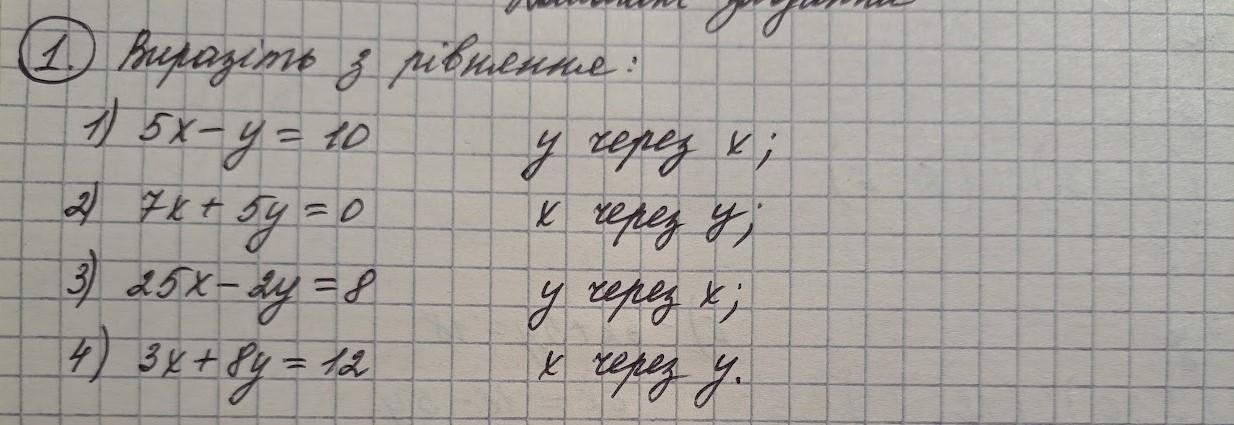 1. Виразіть з рівняння:
1) 5x - y = 10 y через x;
2) 7x + 5y = 0 x через y;
3) 25x - 2y = 8 y через x;
4) 3x + 8y = 12 x через y.